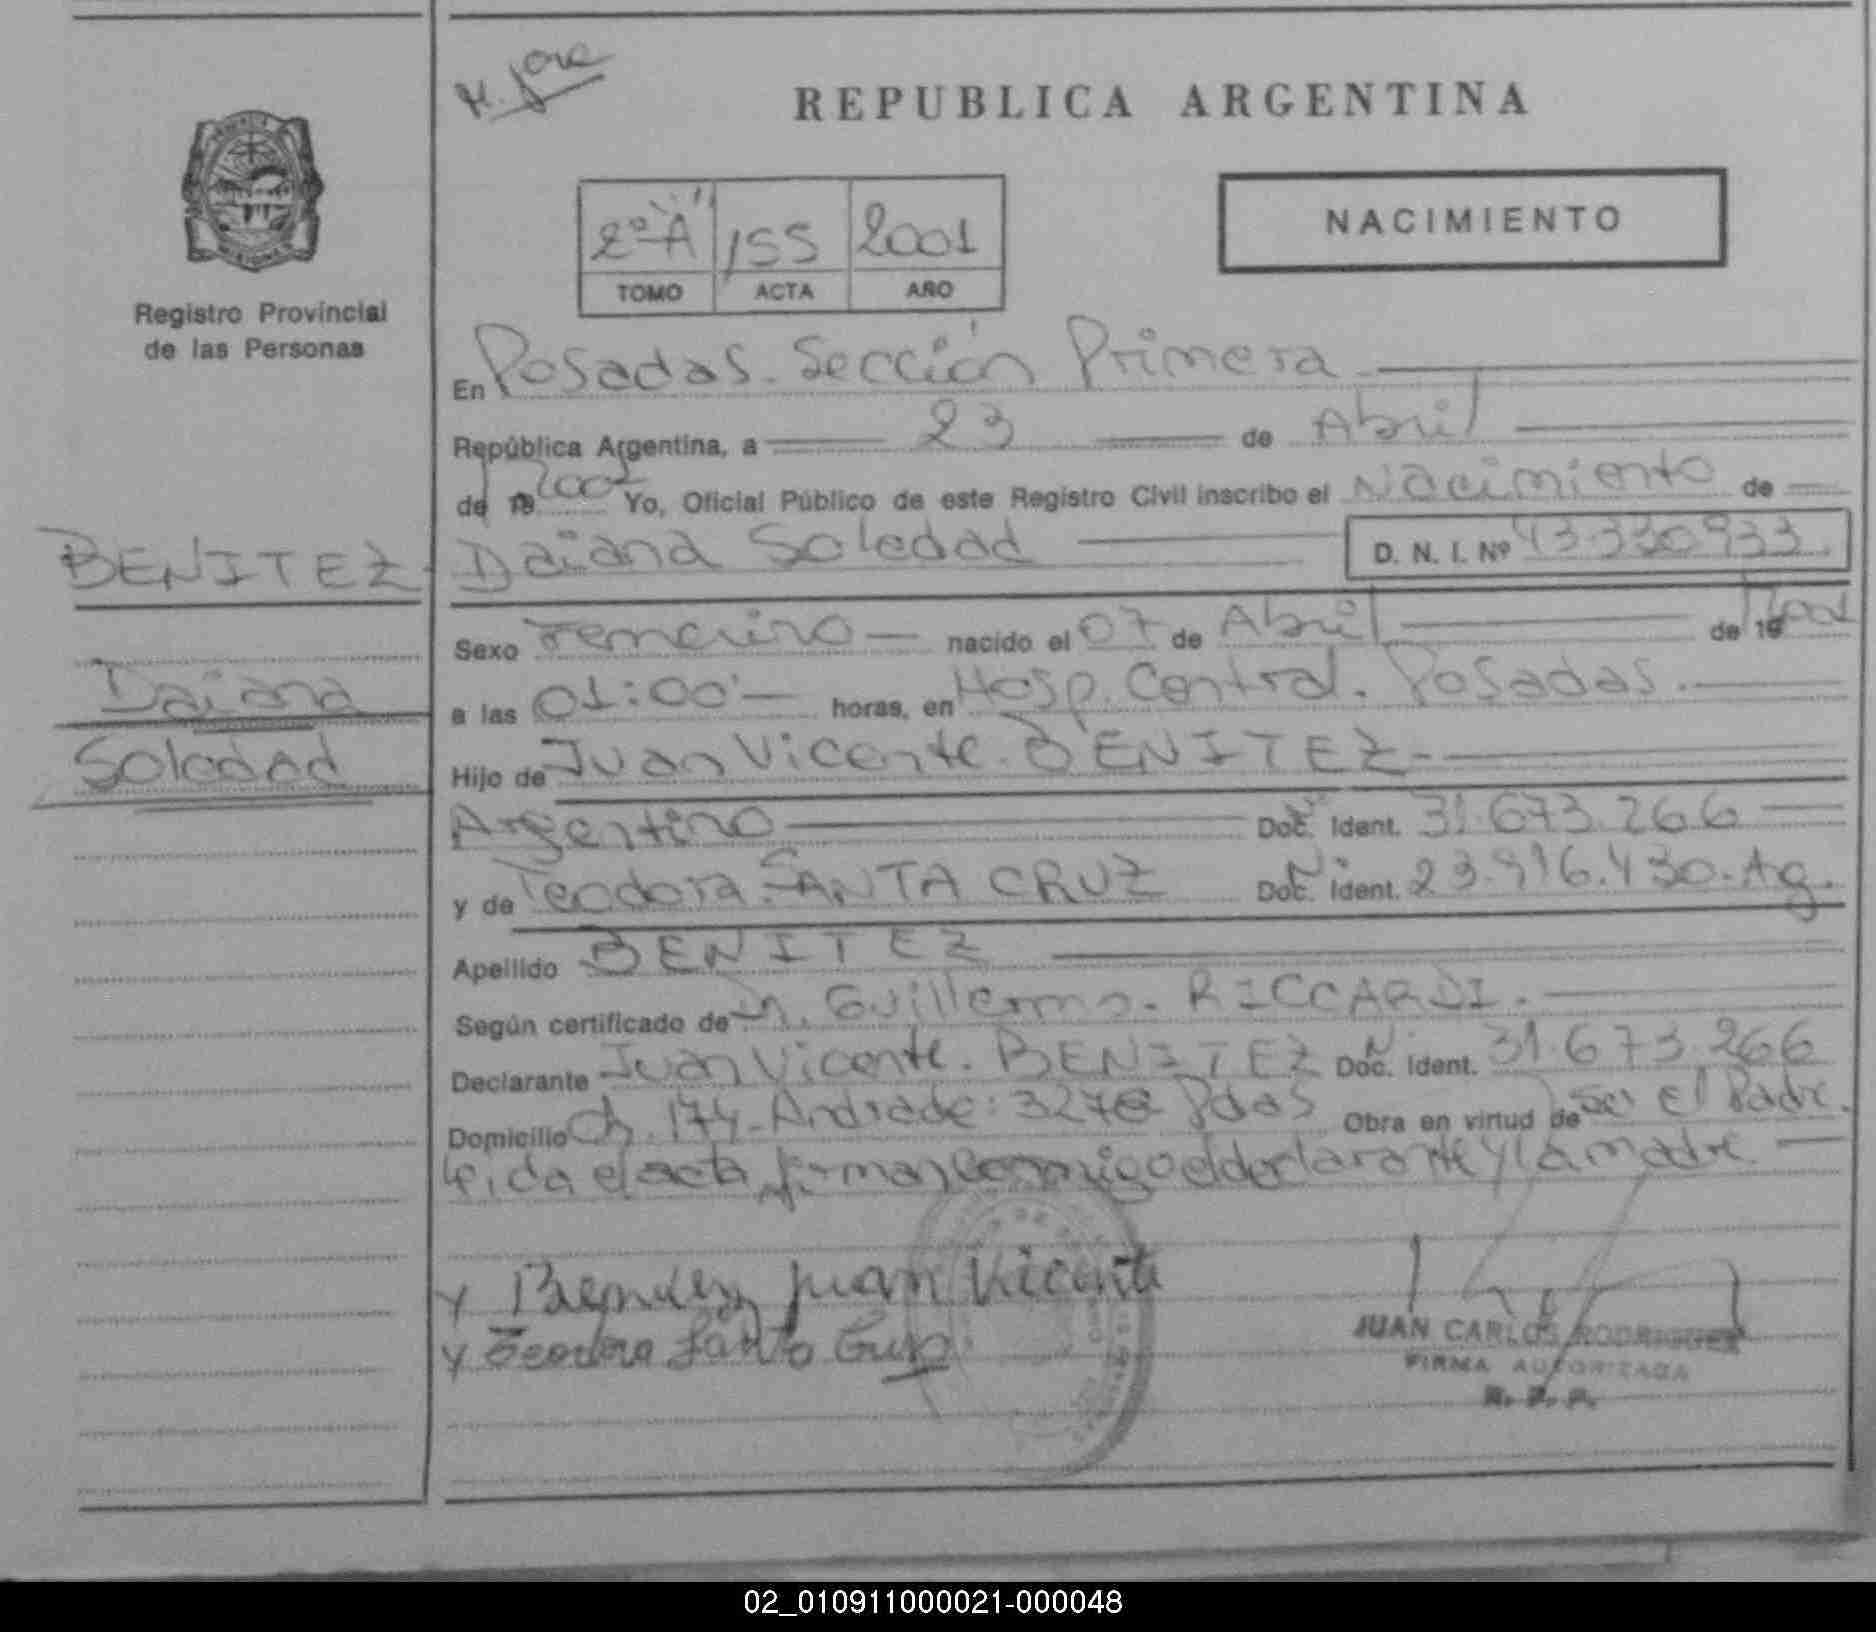 M. José
REPUBLICA ARGENTINA
NACIMIENTO
2º "A" 155 2001
TOMO ACTA AÑO
Registro Provincial
de las Personas
En Posadas. Sección Primera
República Argentina, a 23 de Abril
de 19 2001 Yo, Oficial Público de este Registro Civil inscribo el Nacimiento de
BENITEZ Daiana Soledad D. N. I. Nº 43.330.933.
Sexo Femenino nacido el 07 de Abril de 19 2001
Daiana
a las 01:00 horas, en Hosp. Central. Posadas.
Soledad
Hijo de Juan Vicente. BENITEZ
Argentino Doc. Ident. 31.673.266
y de Teodora. SANTA CRUZ Doc. Ident. 23.916.430. Ag.
Apellido BENITEZ
Según certificado de Dr. Guillermo. RICCARDI.
Declarante Juan Vicente. BENITEZ Doc. Ident. 31.673.266
Domicilio Ch. 174. Andrade: 3276 Pdas Obra en virtud de Ser El Padre.
Leida el acta firman conmigo el declarante y la madre
y Benitez Juan Vicente
y Teodora Santa Cruz
JUAN CARLOS RODRIGUEZ
FIRMA AUTORIZADA
R. P. P.
02_010911000021-000048